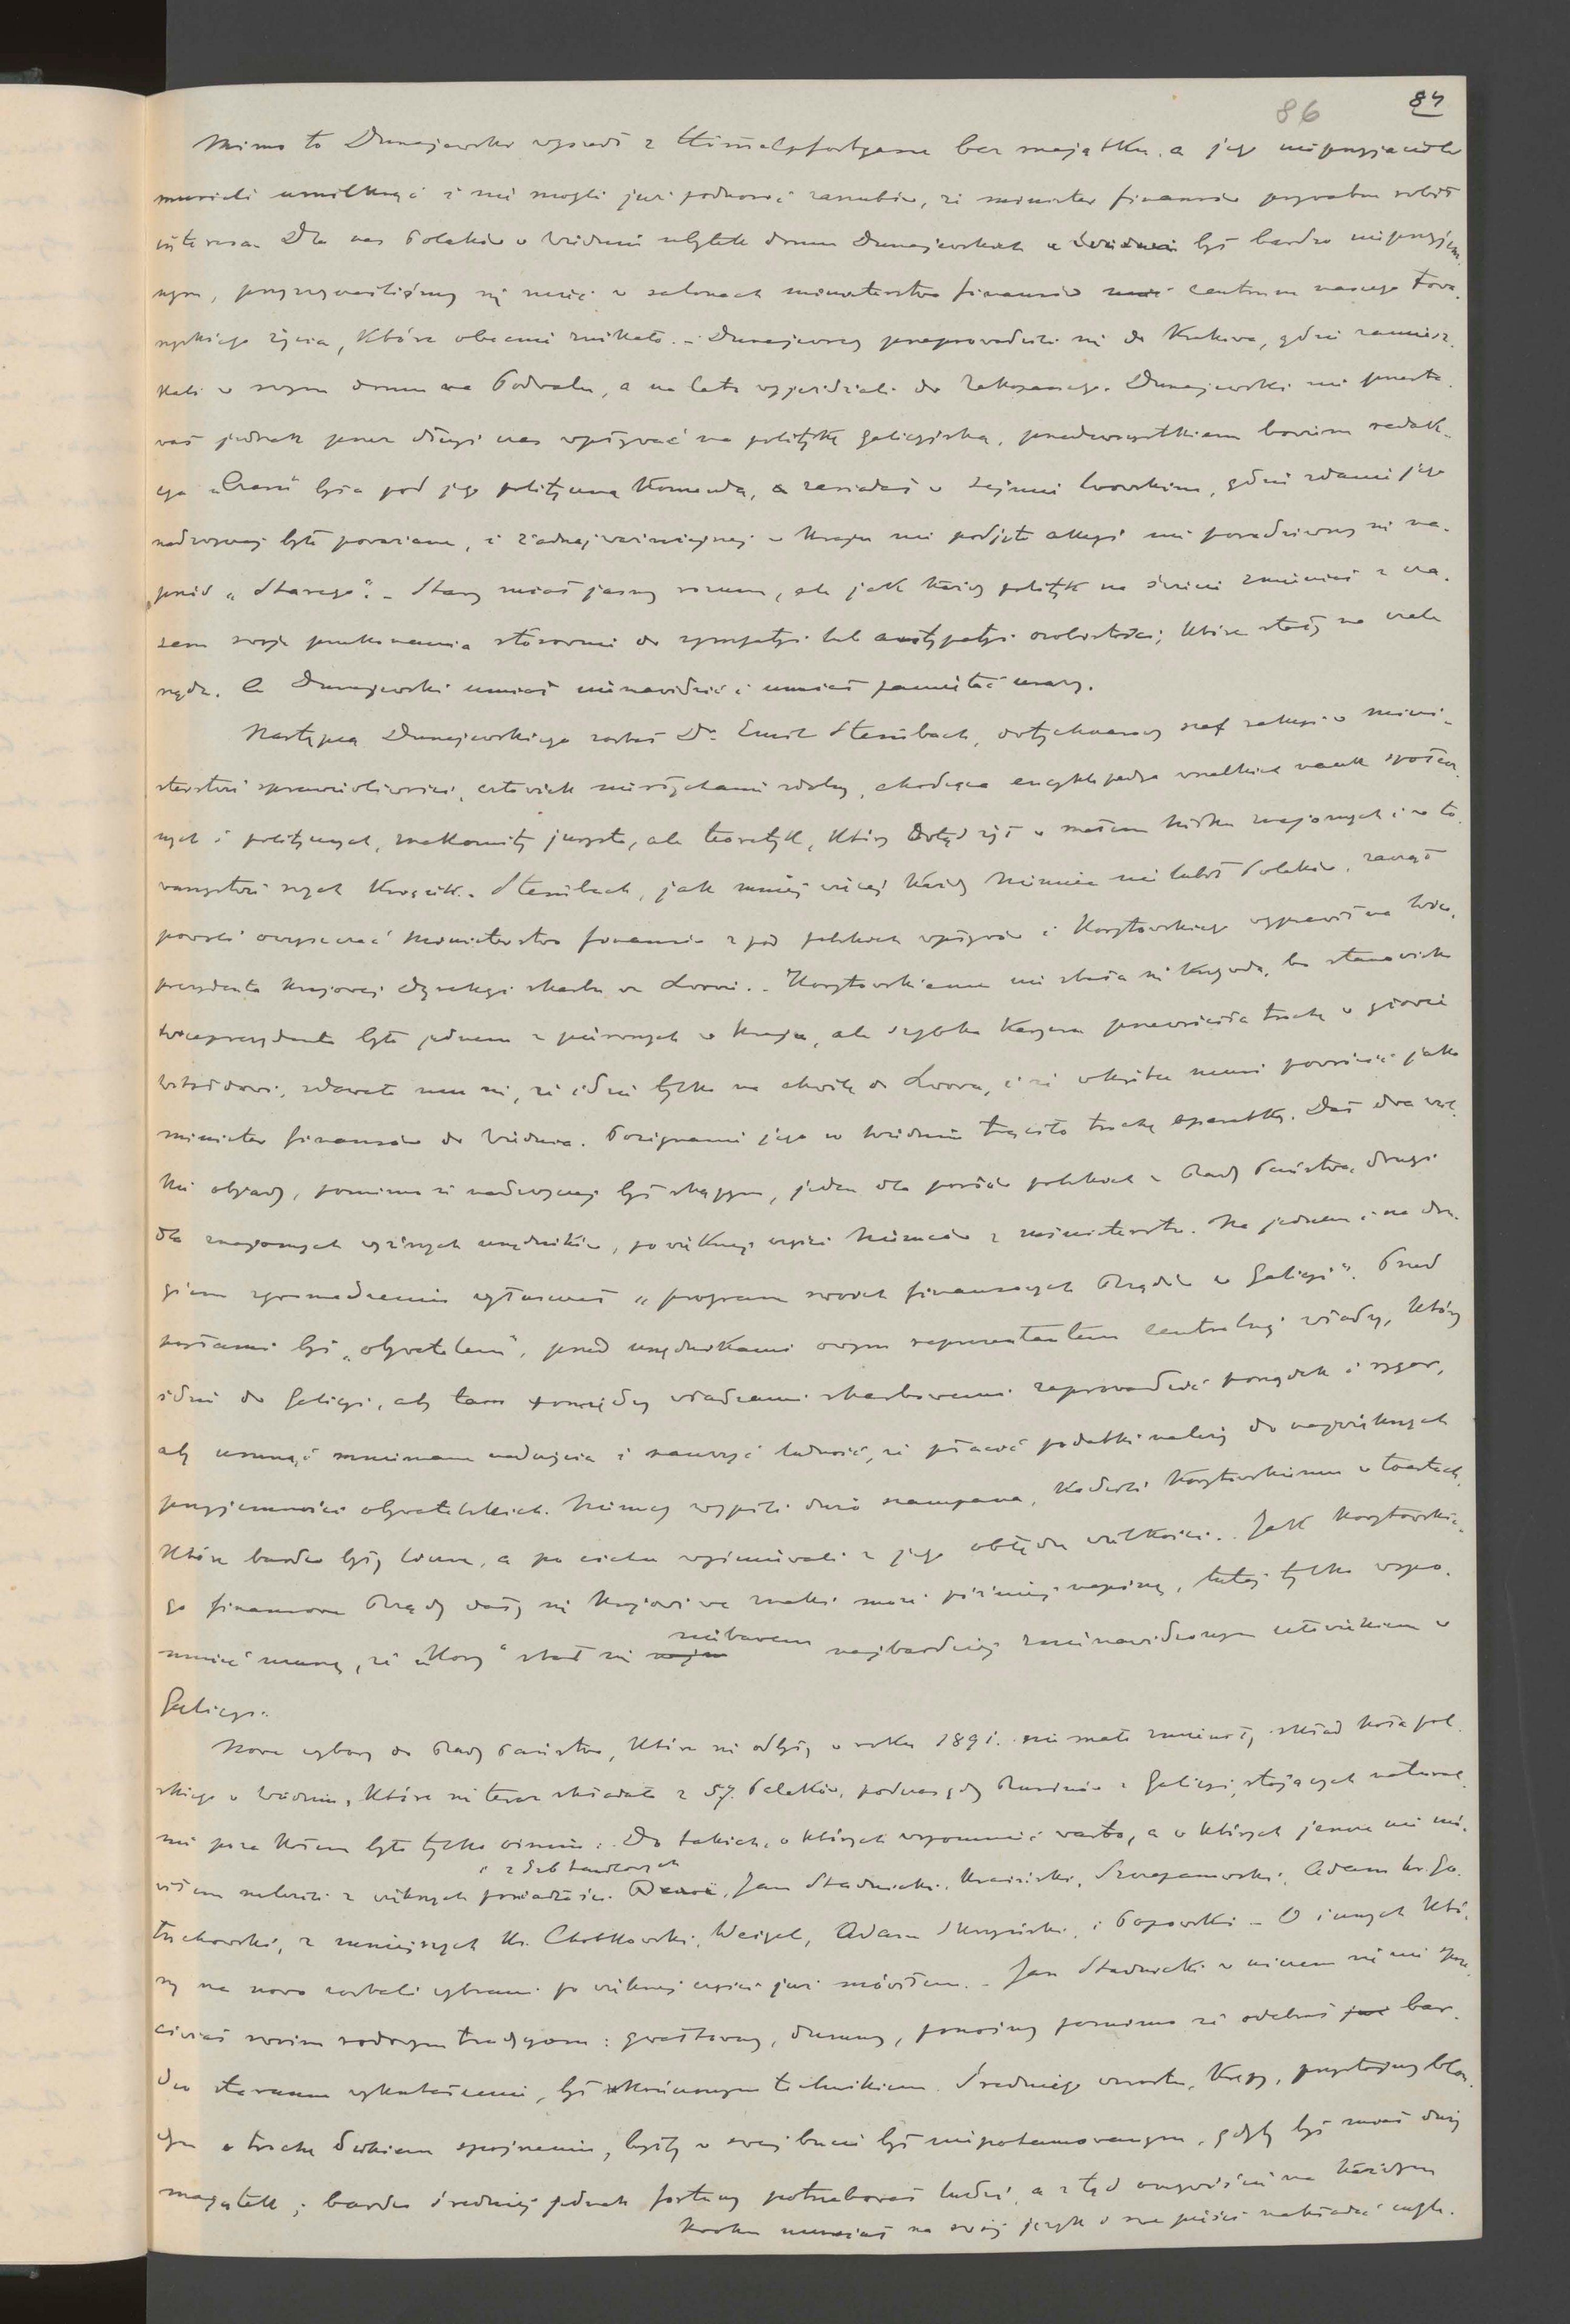 86
84
Mimo to Dunajewski wyszedł z Himmelpfortgasse bez majątku, a jego nieprzyjaciele
musieli umilknąć i nie mogli już podnosić zarzutów, że minister finansów prywatne robił
interesa. Dla nas Polaków w Wiedniu ubytek domu Dunajewskich w Wiedniu był bardzo nieprzyjem-
nym, przyzwyczailiśmy się mieć w salonach ministerstwa finansów mieć centrum naszego towa-
rzyskiego życia, które obecnie znikało. – Dunajewscy przeprowadzili się do Krakowa, gdzie zamiesz-
kali w swym domu na Podwalu, a na lato wyjeżdżali do Zakopanego. Dunajewski nie przesta-
wał jednak przez długi czas wpływać na politykę galicyjską, przedewszystkiem bowiem redak-
cya „Czasu" była pod jego polityczną komendą, a zasiadał w Sejmie lwowskim, gdzie zdanie jego
nadzwyczaj było poważane, i żadnej ważniejszej w kraju nie podjęto akcyi nie poradziwszy się na-
przód „Starego". – Stary miał jasny rozum, ale jak każdy polityk na świecie zmieniał z cza-
sem swoje przekonania stosownie do sympatyi lub antypatyi osobistości, które stały na czele
rządu. A Dunajewski umiał nienawidzieć i umiał pamiętać urazy.
Następcą Dunajewskiego został Dr. Emil Steinbach, dotychczasowy szef sekcyi w mini-
sterstwie sprawiedliwości, człowiek niesłychanie zdolny, chodząca encyklopedya wszelkich nauk społecz-
nych i politycznych, znakomity jurysta, ale teoretyk, który dotąd żył w małem kółku znajomych i w to-
warzystwie swych książek. Steinbach, jak mniej więcej każdy Niemiec nie lubił Polaków, zaczął
powoli oczyszczać ministerstwo finansów z pod polskich wpływów i Korytowskiego wyprawił na wice-
prezydenta krajowej dyrekcyi skarbu we Lwowie. – Korytowskiemu nie stała się krzywda, bo stanowisko
wiceprezydenta było jednem z pierwszych w kraju, ale szybka karyera przewróciła trochę w głowie
Witoldowi, zdawało mu się, że idzie tylko na chwilę do Lwowa, i że wkrótce musi powrócić jako
minister finansów do Wiednia. Pożegnanie jego w Wiedniu trąciło trochę operetką. Dał dwa wiel-
kie obiady, pomimo że nadzwyczaj był skąpym, jeden dla posłów polskich z Rady Państwa, drugi
dla znajomych wyższych urzędników, po większej części Niemców z ministerstw. Na jednem i na dru-
giem zgromadzeniu wygłaszał „program swoich finansowych Rządów w Galicyi". Przed
posłami był „obywatelem", przed urzędnikami owym reprezentantem centralnej władzy, który
idzie do Galicyi, aby tam pomiędzy władzami skarbowemi zaprowadzić porządek i rygor,
aby usunąć mniemane nadużycia i nauczyć ludność, że płacić podatki należy do największych
przyjemności obywatelskich. Niemcy wypili dużo szampana, kadzili Korytowskiemu w toastach,
które bardzo były liczne, a po cichu wyśmiewali z jego obłędu wielkości. – Jak Korytowskie-
go finansowe Rządy dały się krajowi we znaki może później napiszę, tutaj tylko wspo-
mnieć muszę, że „Kory" stał się niebawem najbardziej znienawidzonym człowiekiem w
Galicyi.
Nowe wybory do Rady Państwa, które się odbyły w roku 1891. nie mało zmieniły skład Koła pol-
skiego w Wiedniu, które się teraz składało z 57. Polaków, podczas gdy Rusinów z Galicyi, stojących natural-
nie poza Kołem było tylko ośmiu. Do takich, o których wspomnieć warto, a o których jeszcze nie mó-
i z Izb handlowych
wiłem należeli z większych posiadłości Jan Stadnicki, Kraiński, Szczepanowski, Adam hr. Go-
łuchowski, z mniejszych ks. Chotkowski, Weigel, Adam Skrzyński, i Popowski. – O innych któ-
rzy na nowo zostali wybrani po większej części już mówiłem. – Jan Stadnicki w niczem się nie sprze-
ciwiał swoim rodowym tradycyom: gwałtowny, dumny, ponośny pomimo że odebrał już bar-
dzo staranne wykształcenie, był skończonym technikiem. Średniego wzrostu, krępy, przystojny blon-
dyn o trochę dzikiem spojrzeniu, byłby w swej bucie był niepohamowanym, gdyby był miał duży
majątek; bardzo średniej jednak fortuny potrzebował ludzi, a z tąd oczywiście na każdym
kroku musiał na swój język i swe pięści nakładać cugle.